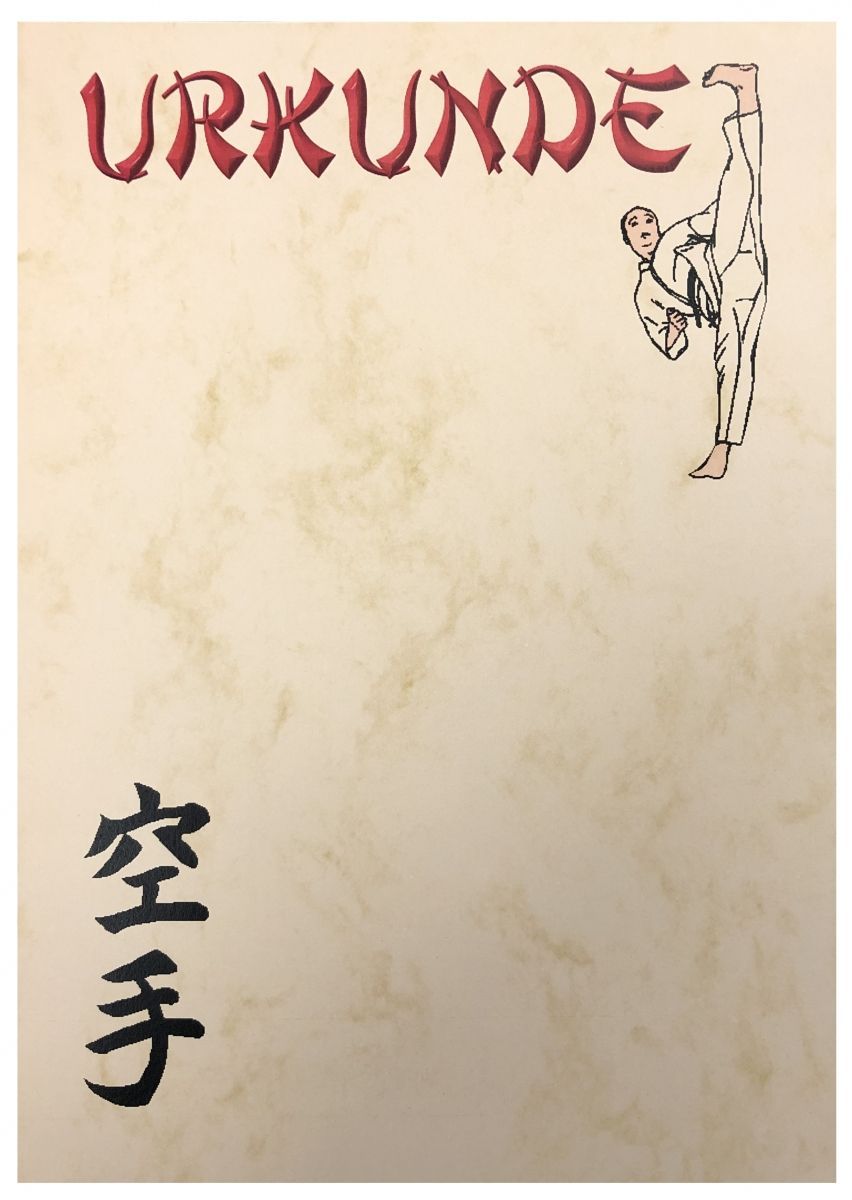 URKUNDE
空手